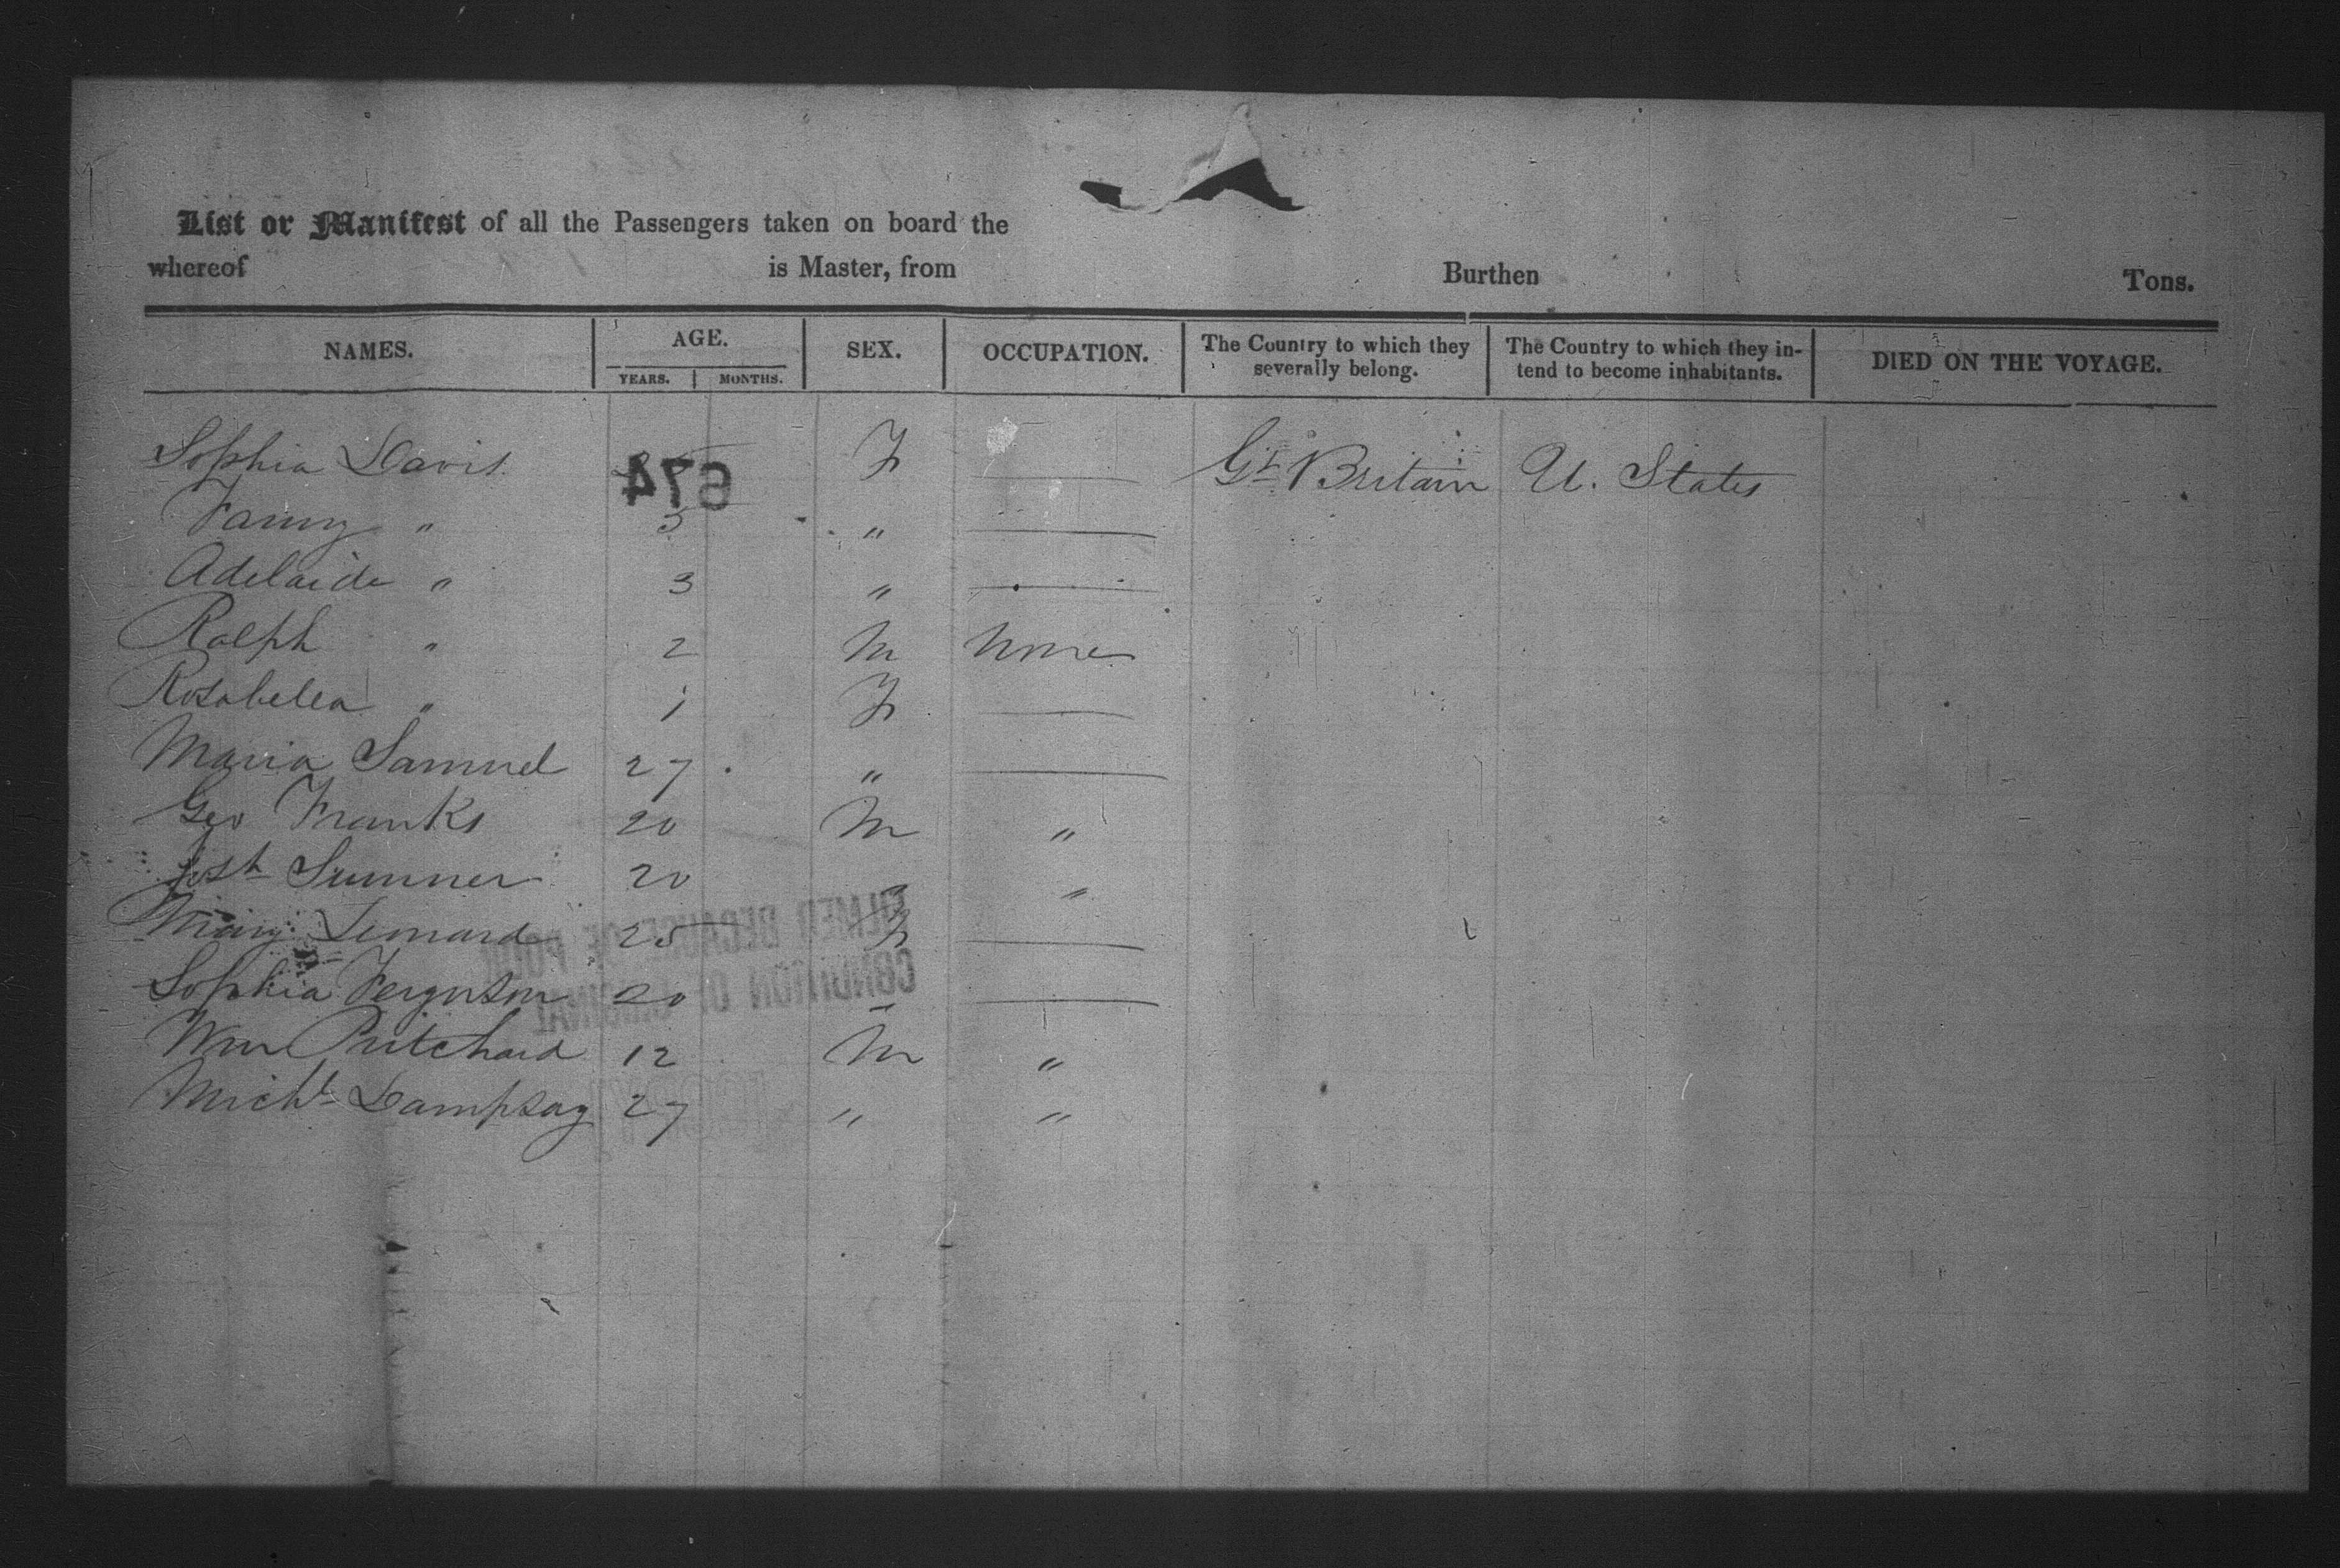 List or Manifest of all the Passengers taken on board the
whereof is Master, from Burthen Tons.
NAMES. AGE. SEX. OCCUPATION. The Country to which they severally belong. The Country to which they intend to become inhabitants. DIED ON THE VOYAGE.
YEARS. MONTHS.
Sophia Davis F — Gt Britain U. States
674
Fanny " 5 " —
Adelaide " 3 " —
Ralph " 2 M None
Rosabelea " 1 F —
Maria Samuel 27 " —
Geo Franks 20 M "
Josh Sumner 20 " "
Mary Lenard 25 F —
Sophia Ferguson 20 " —
Wm Pritchard 12 M "
Michl Dampsay 27 " "
FILMED BECAUSE OF POOR
CONDITION OF ORIGINAL